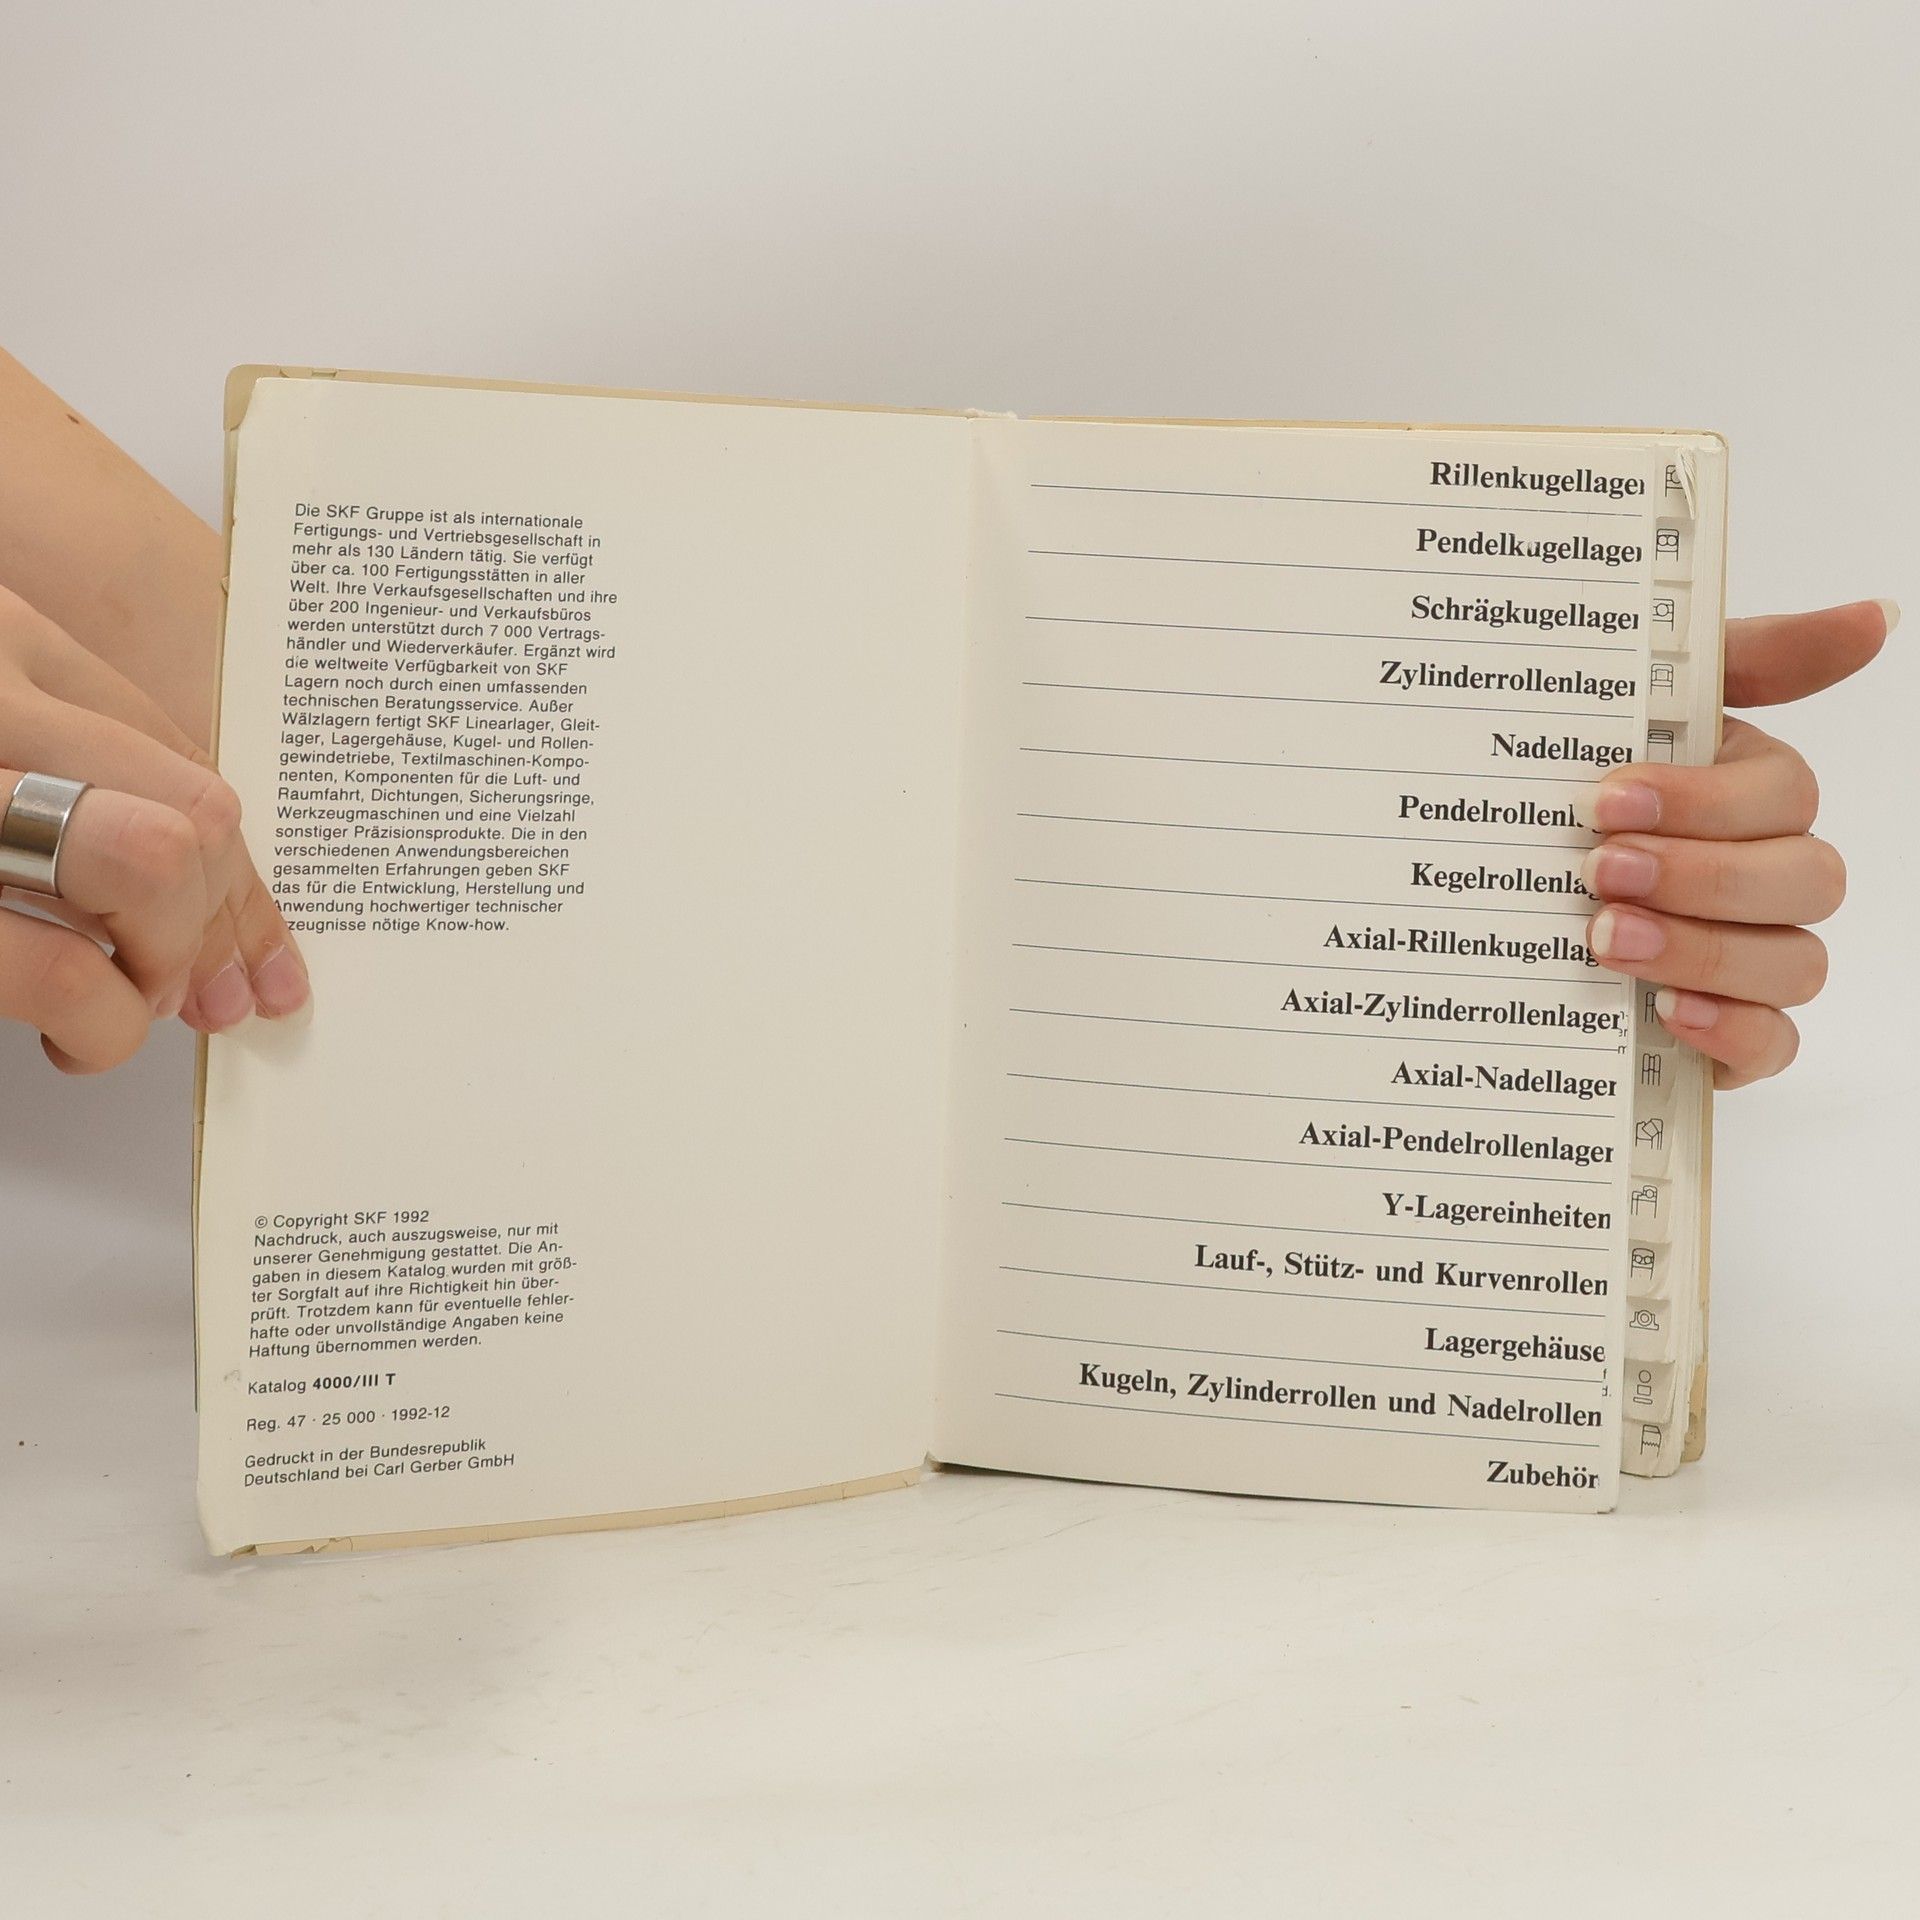 Die SKF Gruppe ist als internationale
Fertigungs- und Vertriebsgesellschaft in
mehr als 130 Ländern tätig. Sie verfügt
über ca. 100 Fertigungsstätten in aller
Welt. Ihre Verkaufsgesellschaften und ihre
über 200 Ingenieur- und Verkaufsbüros
werden unterstützt durch 7 000 Vertrags-
händler und Wiederverkäufer. Ergänzt wird
die weltweite Verfügbarkeit von SKF
Lagern noch durch einen umfassenden
technischen Beratungsservice. Außer
Wälzlagern fertigt SKF Linearlager, Gleit-
lager, Lagergehäuse, Kugel- und Rollen-
gewindetriebe, Textilmaschinen-Kompo-
nenten, Komponenten für die Luft- und
Raumfahrt, Dichtungen, Sicherungsringe,
Werkzeugmaschinen und eine Vielzahl
sonstiger Präzisionsprodukte. Die in den
verschiedenen Anwendungsbereichen
gesammelten Erfahrungen geben SKF
das für die Entwicklung, Herstellung und
Anwendung hochwertiger technischer
zeugnisse nötige Know-how.
© Copyright SKF 1992
Nachdruck, auch auszugsweise, nur mit
unserer Genehmigung gestattet. Die An-
gaben in diesem Katalog wurden mit größ-
ter Sorgfalt auf ihre Richtigkeit hin über-
prüft. Trotzdem kann für eventuelle fehler-
hafte oder unvollständige Angaben keine
Haftung übernommen werden.
Katalog 4000/III T
Reg. 47 · 25 000 · 1992-12
Gedruckt in der Bundesrepublik
Deutschland bei Carl Gerber GmbH
Rillenkugellager
Pendelkugellager
Schrägkugellager
Zylinderrollenlager
Nadellager
Pendelrollenl
Kegelrollenla
Axial-Rillenkugellag
Axial-Zylinderrollenlager
Axial-Nadellager
Axial-Pendelrollenlager
Y-Lagereinheiten
Lauf-, Stütz- und Kurvenrollen
Lagergehäuse
Kugeln, Zylinderrollen und Nadelrollen
Zubehör